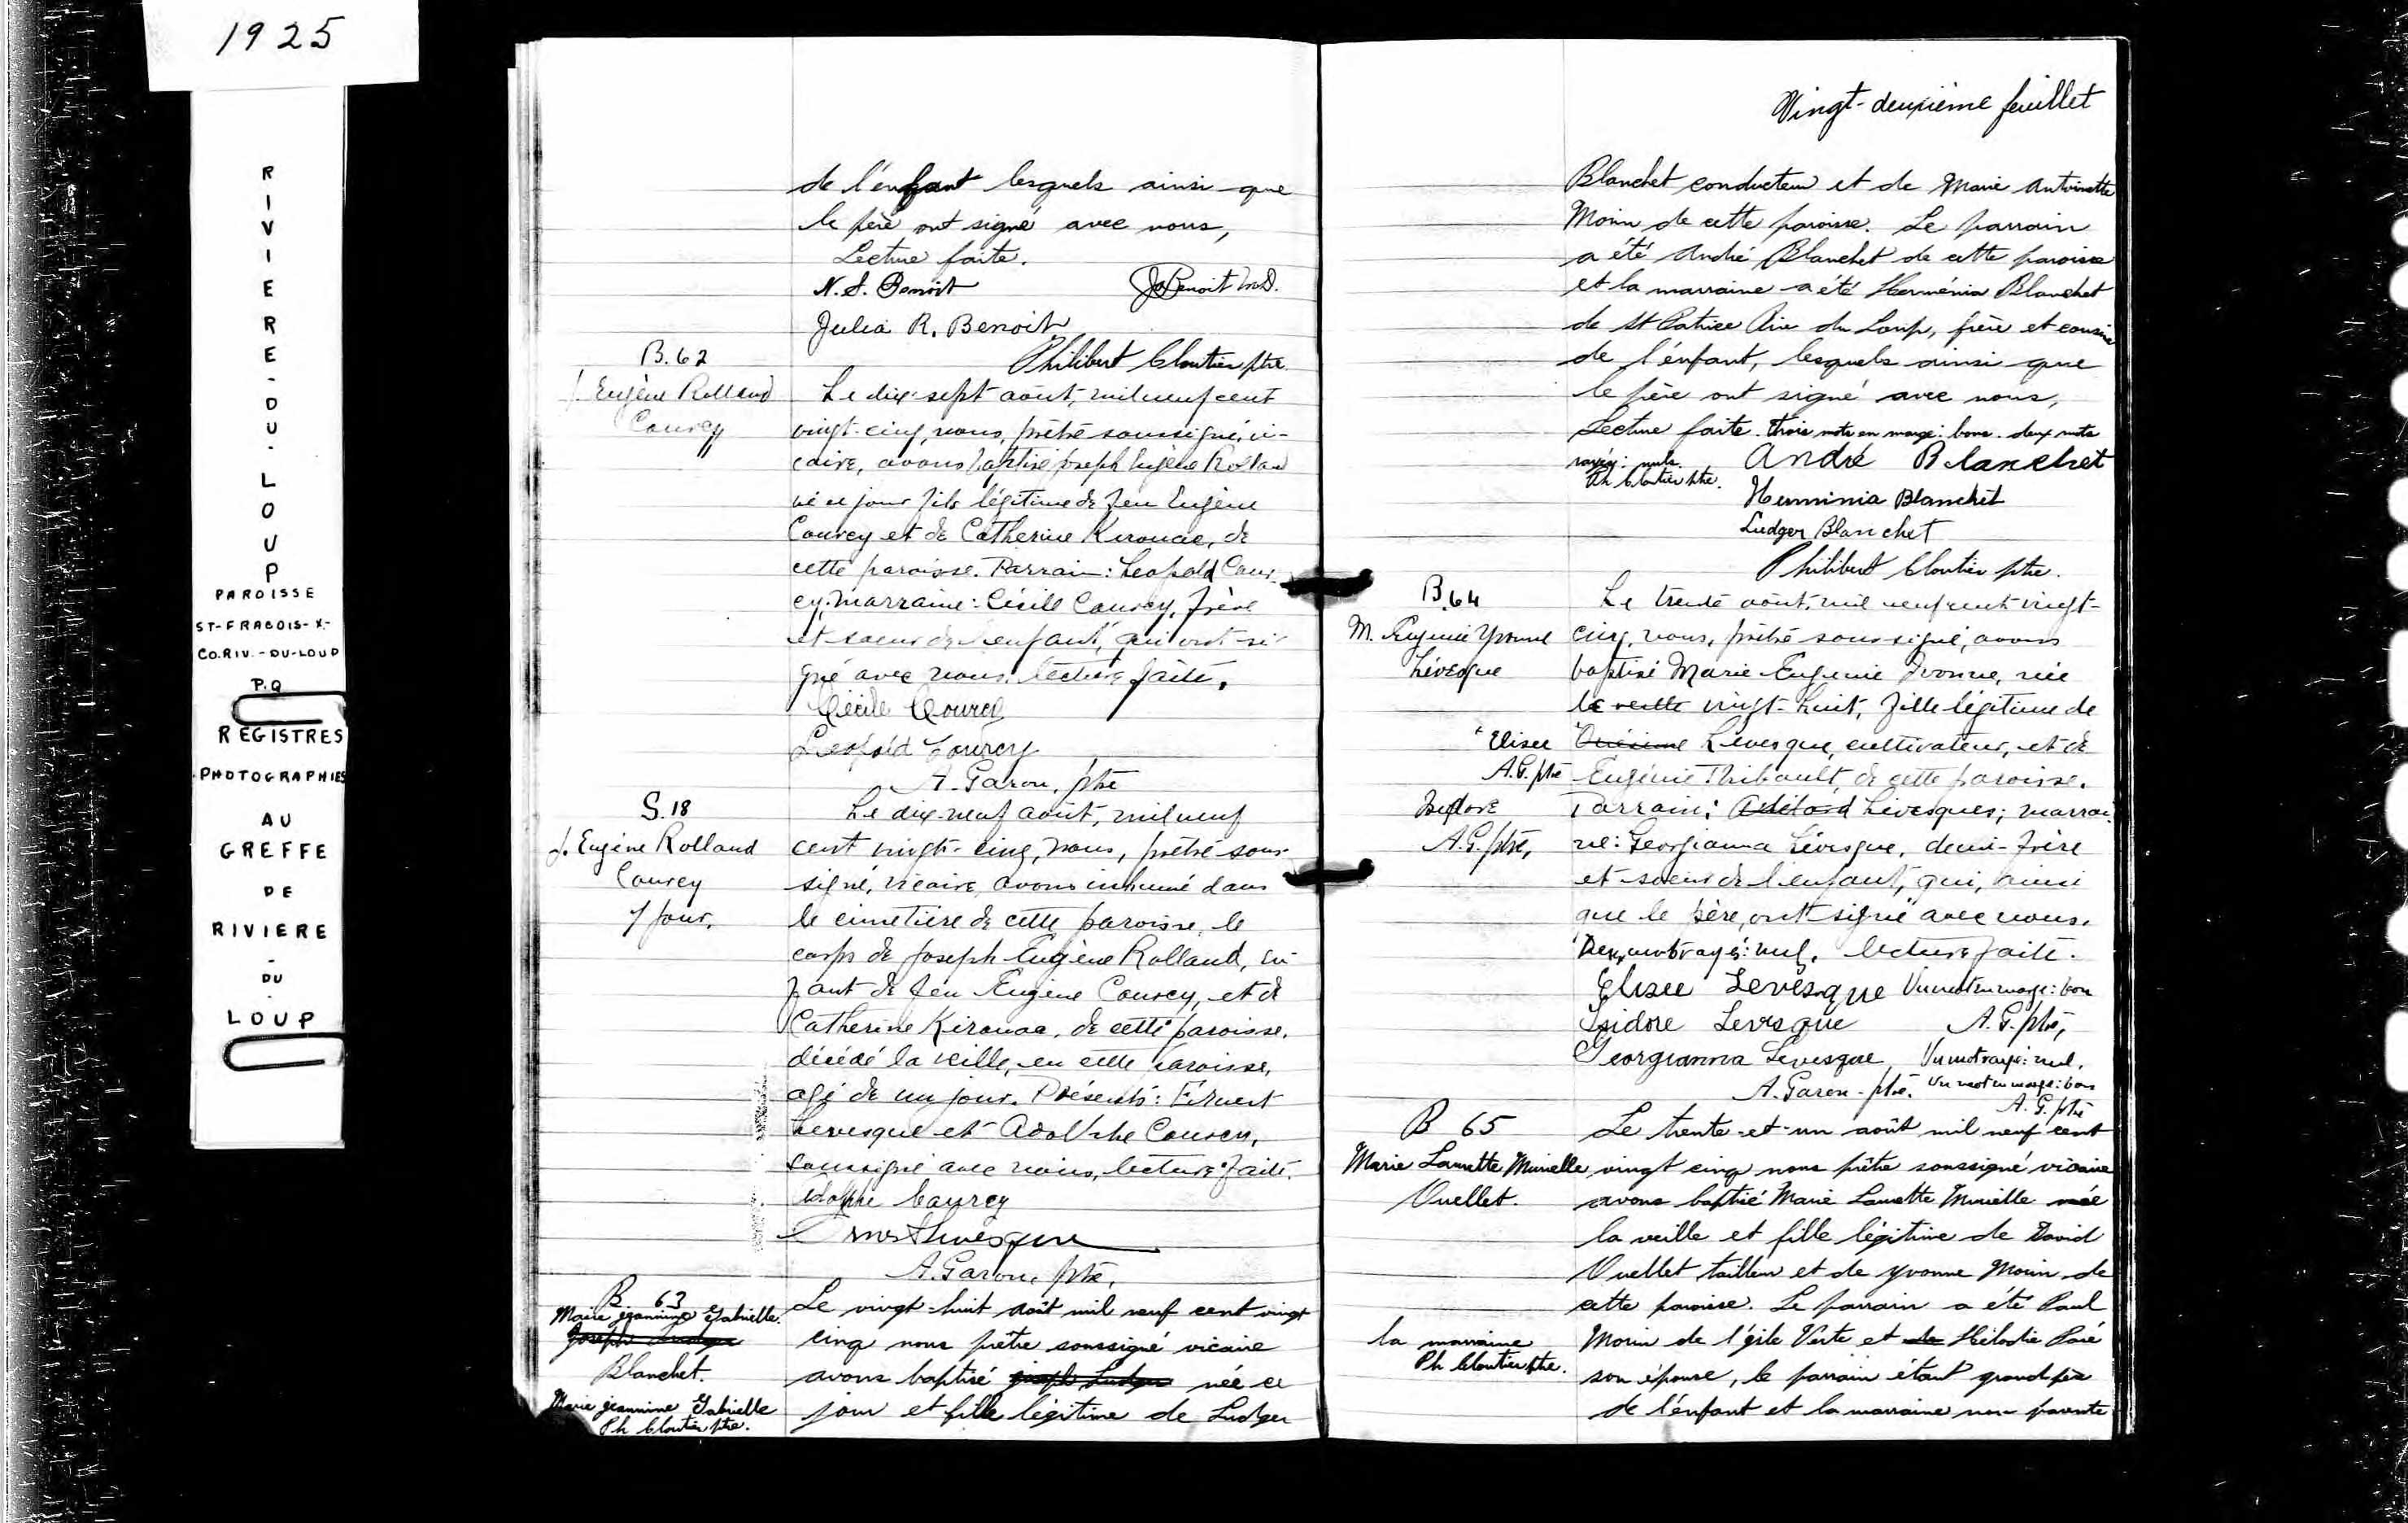 1925
RIVIERE-DU-LOUP
PAROISSE
ST-FRACOIS-X-
CO.RIV.-DU-LOUP
P.Q
REGISTRES
PHOTOGRAPHIES
AU
GREFFE
DE
RIVIERE
-
DU
-
LOUP
de l'enfant lesquels ainsi que
le père ont signé avec nous,
Lecture faite.
N. S. Benoit
Benoit M.D.
Julia R. Benoit
Philibert Cloutier ptre.
B.62
J. Eugène Rolland
Courcy
Le dix-sept août, mil neuf cent
vingt-cinq, nous, prêtre soussigné, vi-
caire, avons baptisé Joseph Eugène Rolland
né ce jour fils légitime de feu Eugène
Courcy et de Catherine Kirouac, de
cette paroisse. Parrain: Leopold Cour-
cy; marraine: Cécile Courcy, frère
et soeur de l'enfant, qui ont si-
gné avec nous. lecture faite.
Cécile Courcy
Leopold Courcy
A. Garon, ptre
S.18
J. Eugène Rolland
Courcy
1 jour.
Le dix-neuf août, mil neuf
cent vingt-cinq, nous, prêtre sous-
signé, vicaire, avons inhumé dans
le cimetière de cette paroisse, le
corps de Joseph Eugène Rolland, en-
fant de feu Eugène Courcy, et de
Catherine Kirouac, de cette paroisse,
décédé la veille, en cette paroisse,
agé de un jour. Présents: Ernest
Levesque et Adolphe Courcy,
soussigné avec nous, lecture faite.
Adolphe Courcy
Ernest Levesque
A. Garon, ptre.
B 63
Marie Jeannine Gabrielle
Joseph Ludger
Blanchet.
Marie Jeannine Gabrielle
Ph Cloutier ptre.
Le vingt-huit août mil neuf cent vingt
cinq nous prêtre soussigné vicaire
avons baptisé Joseph Ludger née ce
jour et fille légitime de Ludger
Vingt-deuxième feuillet
Blanchet conducteur et de Marie Antoinette
Morin de cette paroisse. Le parrain
a été André Blanchet de cette paroisse
et la marraine a été Herménia Blanchet
de St Patrice Riv du Loup, frère et cousine
de l'enfant, lesquels ainsi que
le père ont signé avec nous,
Lecture faite. trois mots en marge: bons. deux mots
rayés: nuls.
Ph Cloutier ptre.
André Blanchet
Herminia Blanchet
Ludger Blanchet
Philibert Cloutier ptre.
B.64
M. Eugenie Yvonne
Lévesque
Le trente août, mil neuf cent vingt-
cinq, nous, prêtre soussigné, avons
baptisé Marie Eugenie Yvonne, née
le veille vingt-huit, fille légitime de
Elisee
A.G. ptre
Onésime Lévesque, cultivateur, et de
Eugénie Thibault, de cette paroisse.
Isidore
A.G. ptre,
Parrain: Adélard Lévesques; marrai-
ne: Georgianna Lévesque, demi-frère
et soeur de l'enfant, qui, ainsi
que le père, ont signé avec nous.
Deux mots rayés: nuls. lecture faite.
Elisee Levesque Un mot en marge: bon
Isidore Levesque A. G. ptre,
Georgianna Levesque Un mot rayé: nul.
A. Garon-ptre. Un mot en marge: bon
A. G. ptre
B 65
Marie Laurette Murielle
Ouellet.
Le trente-et-un août mil neuf cent
vingt cinq nous prêtre soussigné vicaire
avons baptisé Marie Laurette Murielle née
la veille et fille légitime de David
Ouellet tailleur et de Yvonne Morin de
cette paroisse. Le parrain a été Paul
la marraine
Ph Cloutier ptre.
Morin de l'Isle Verte et de Hélodie Paré
son épouse, le parrain étant grand père
de l'enfant et la marraine non parente